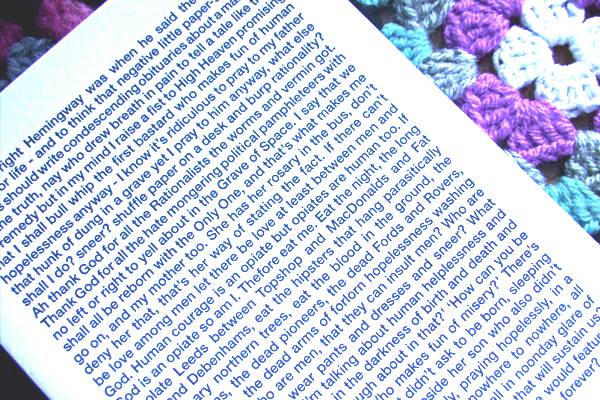 right Hemingway was when he said the
or life - and to think that negative little paper-
should write condescending obituaries about a man
the truth, nay who drew breath in pain to tell a tale like
remedy but in my mind I raise a fist to High Heaven promising
hat I shall bull whip the first bastard who makes fun of human
hopelessness anyway - I know it's ridiculous to pray to my father
that hunk of dung in a grave yet I pray to him anyway, what else
shall I do? sneer? shuffle paper on a desk and burp rationality?
Ah thank God for all the Rationalists the worms and vermin got.
Thank God for all the hate mongering political pamphleteers with
no left or right to yell about in the Grave of Space. I say that we
shall all be reborn with the Only One, and that's what makes me
go on, and my mother too. She has her rosary in the bus, don't
deny her that, that's her way of stating the fact. If there can't
be love among men let there be love at least between men and
God. Human courage is an opiate but opiates are human too. If
God is an opiate so am I. Thefore eat me. Eat the night, the long
olate Leeds between Topshop and MacDonalds and Fat
and Debenhams, eat the hipsters that hang parasitically
ary northern trees, eat the blood in the ground, the
the dead pioneers, the dead Fords and Rovers,
the dead arms of forlorn hopelessness washing
ho are men, that they can insult men? Who are
wear pants and dresses and sneer? What
I'm talking about human helplessness and
in the darkness of birth and death and
ugh about in that?" "How can you be
ho makes fun of misery?" There's
t didn't ask to be born, sleeping
eside her son who also didn't
ly, praying hopelessly, in a
nowhere to nowhere, all
all in noonday glare of
that will sustain us?
e would feature
forever?